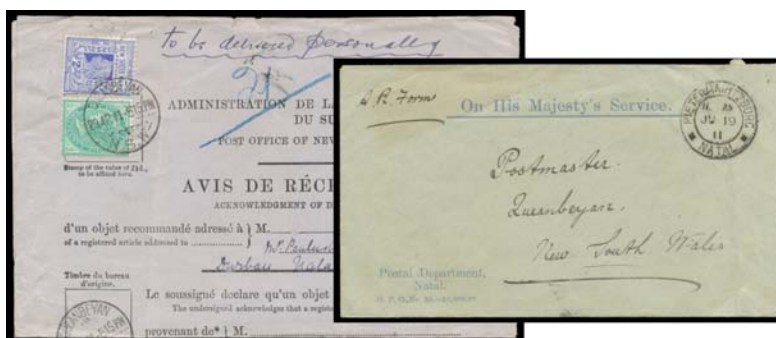 to be delivered personally
ADMINISTRATION DE LA
DU SU
POST OFFICE OF NEW
Stamp of the value of 2½d.
to be affixed here.
AVIS DE RÉCE
ACKNOWLEDGMENT OF D
d'un objet recommandé adressé à } M.
of a registered article addressed to
Durban Natal
Timbre du bureau
d'origine.
QUEANBEYAN
Le soussigné déclare qu'un objet
The undersigned acknowledges that a regist
provenant de* } M.
A R Form
On His Majesty's Service.
PIETERMARITZBURG
JU 19
11
NATAL
Postmaster.
Queanbeyan.
New South Wales
Postal Department,
Natal.